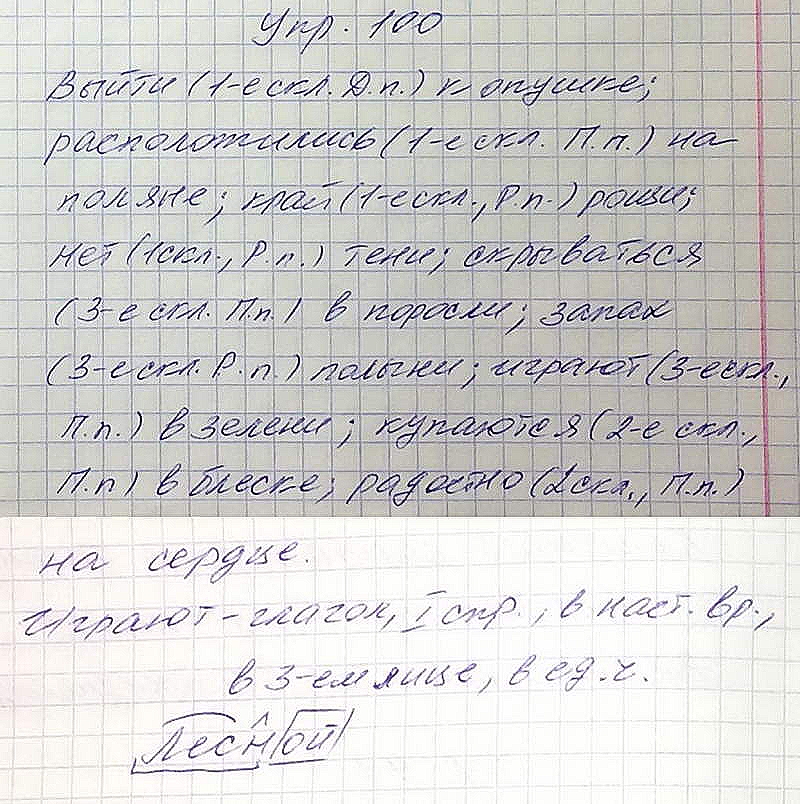 Упр. 100
Выйти (1-е скл. Д.п.) к опушке;
расположились (1-е скл. П.п.) на
поляне; край (1-е скл., Р.п.) рощи;
нет (1 скл., Р.п.) тени; скрываться
(3-е скл. П.п.) в поросли; запах
(3-е скл. Р.п.) полыни; играют (3-е скл.,
П.п.) в зелени; купаются (2-е скл.,
П.п) в блеске; радостно (2 скл., П.п.)
на сердце.
Играют - глагол, I спр., в наст. вр.,
в 3-ем лице, в ед. ч.
Лесной